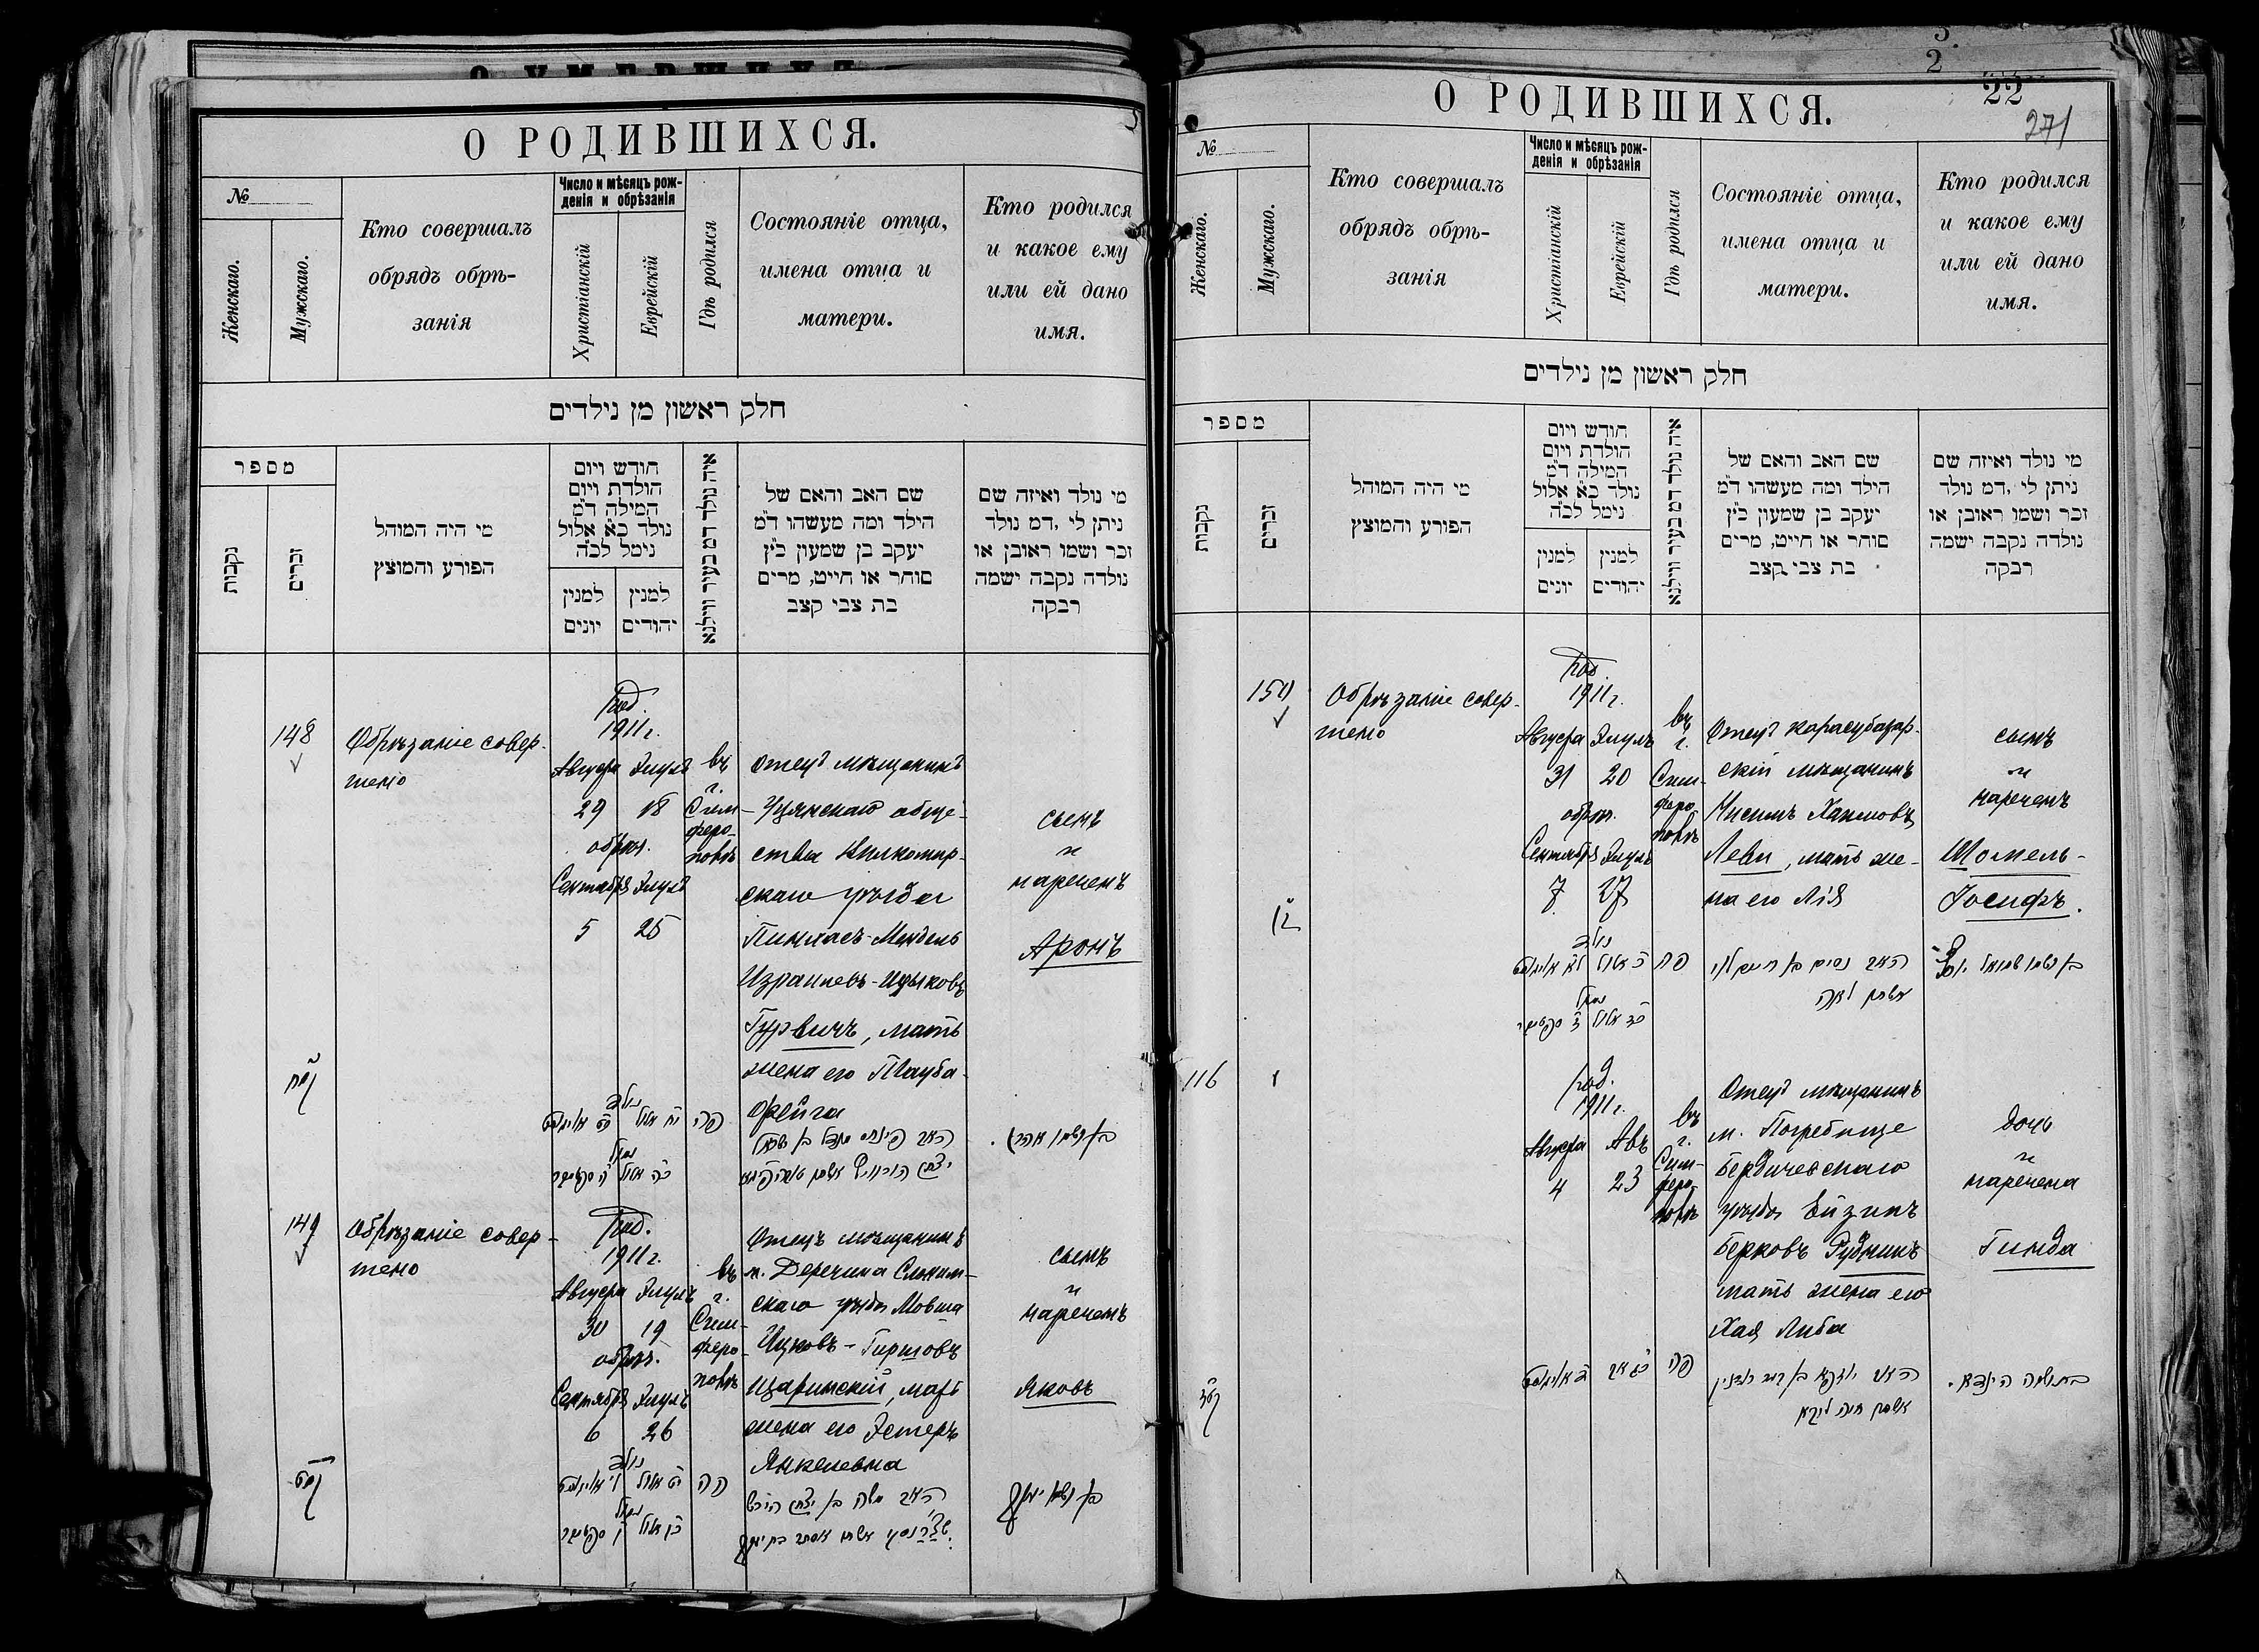 О РОДИВШИХСЯ.
№
Женскаго.
Мужскаго.
Кто совершалъ
обрядъ обрѣ-
занія
Число и мѣсяцъ рож-
денія и обрѣзанія
Христіанскій
Еврейскій
Гдѣ родился
Состояніе отца,
имена отца и
матери.
Кто родился
и какое ему
или ей дано
имя.
חלק ראשון מן נילדים
מספר
נקבות
זכרים
מי היה המוהל
הפורע והמוצץ
חודש ויום
הולדת ויום
המילה ד״מ
נולד כ״א אלול
נימל לכ״ה
למנין
יונים
למנין
יהודים
איה נולד דמ בעיר ווילנא
שם האב והאם של
הילד ומה מעשהו ד״מ
יעקב בן שמעון כ״ץ
סוחר או חייט, מרים
בת צבי קצב
מי נולד ואיזה שם
ניתן לי ,דמ נולד
זכר ושמו ראובן או
נולדה נקבה ישמה
רבקה
148
Обрѣзаніе совер-
шено
Год.
1911 г.
Августа Элулъ
29 18
обрѣз.
Сентября Элулъ
5 25
въ
г.
Сим-
феро-
полѣ
Отецъ мѣщанинъ
Уцянскаго обще-
ства Вилкомир-
скаго уѣзда
Пинхасъ-Мендель
Израилевъ-Ицыковъ
Гурвичъ, мать
жена его Тауба-
Фейга
сынъ
и
нареченъ
Аронъ
קמח
נולד
פה
בן ושמו אהרן.
149
Обрѣзаніе совер-
шено
Год.
1911 г.
Августа Элулъ
30 19
обрѣз.
Сентября Элулъ
6 26
въ
г.
Сим-
феро-
полѣ
Отецъ мѣщанинъ
м. Деречина Слоним-
скаго уѣзда Мовша
Ицковъ-Гиршовъ
мать
жена его Эстеръ
Янкелевна
сынъ
и
нареченъ
Яковъ
קמט
נולד
פה
האב משה בן יצחק הירש
בן ושמו יעקב
О РОДИВШИХСЯ.
2
22
271
№
Женскаго.
Мужскаго.
Кто совершалъ
обрядъ обрѣ-
занія
Число и мѣсяцъ рож-
денія и обрѣзанія
Христіанскій
Еврейскій
Гдѣ родился
Состояніе отца,
имена отца и
матери.
Кто родился
и какое ему
или ей дано
имя.
חלק ראשון מן נילדים
מספר
נקבות
זכרים
מי היה המוהל
הפורע והמוצץ
חודש ויום
הולדת ויום
המילה ד״מ
נולד כ״א אלול
נימל לכ״ה
למנין
יונים
למנין
יהודים
איה נולד דמ בעיר ווילנא
שם האב והאם של
הילד ומה מעשהו ד״מ
יעקב בן שמעון כ״ץ
סוחר או חייט, מרים
בת צבי קצב
מי נולד ואיזה שם
ניתן לי ,דמ נולד
זכר ושמו ראובן או
נולדה נקבה ישמה
רבקה
150
Обрѣзаніе совер-
шено
Год.
1911 г.
Августа Элулъ
31 20
обрѣз.
Сентября Элулъ
7 27
въ
г.
Сим-
феро-
полѣ
Отецъ Карасубазар-
скій мѣщанинъ
Нисимъ Хаимовъ
Леви, мать же-
на его Лія
сынъ
и
нареченъ
Шомель-
Іосифъ.
קנ
נולד
פה
האב נסים בן חיים לוי
אשתו לאה
בן ושמו שמואל יוסף
116
Год.
1911 г.
Августа Авъ
4 23
въ
г.
Сим-
феро-
полѣ
Отецъ мѣщанинъ
м. Погребище
Бердичевскаго
уѣзда Эйзикъ
Берковъ Рудникъ
мать жена его
Хая Либа
дочь
и
наречена
Гинда
קטז
פה
אשתו חיה ליבא
בת ושמה הינדא.